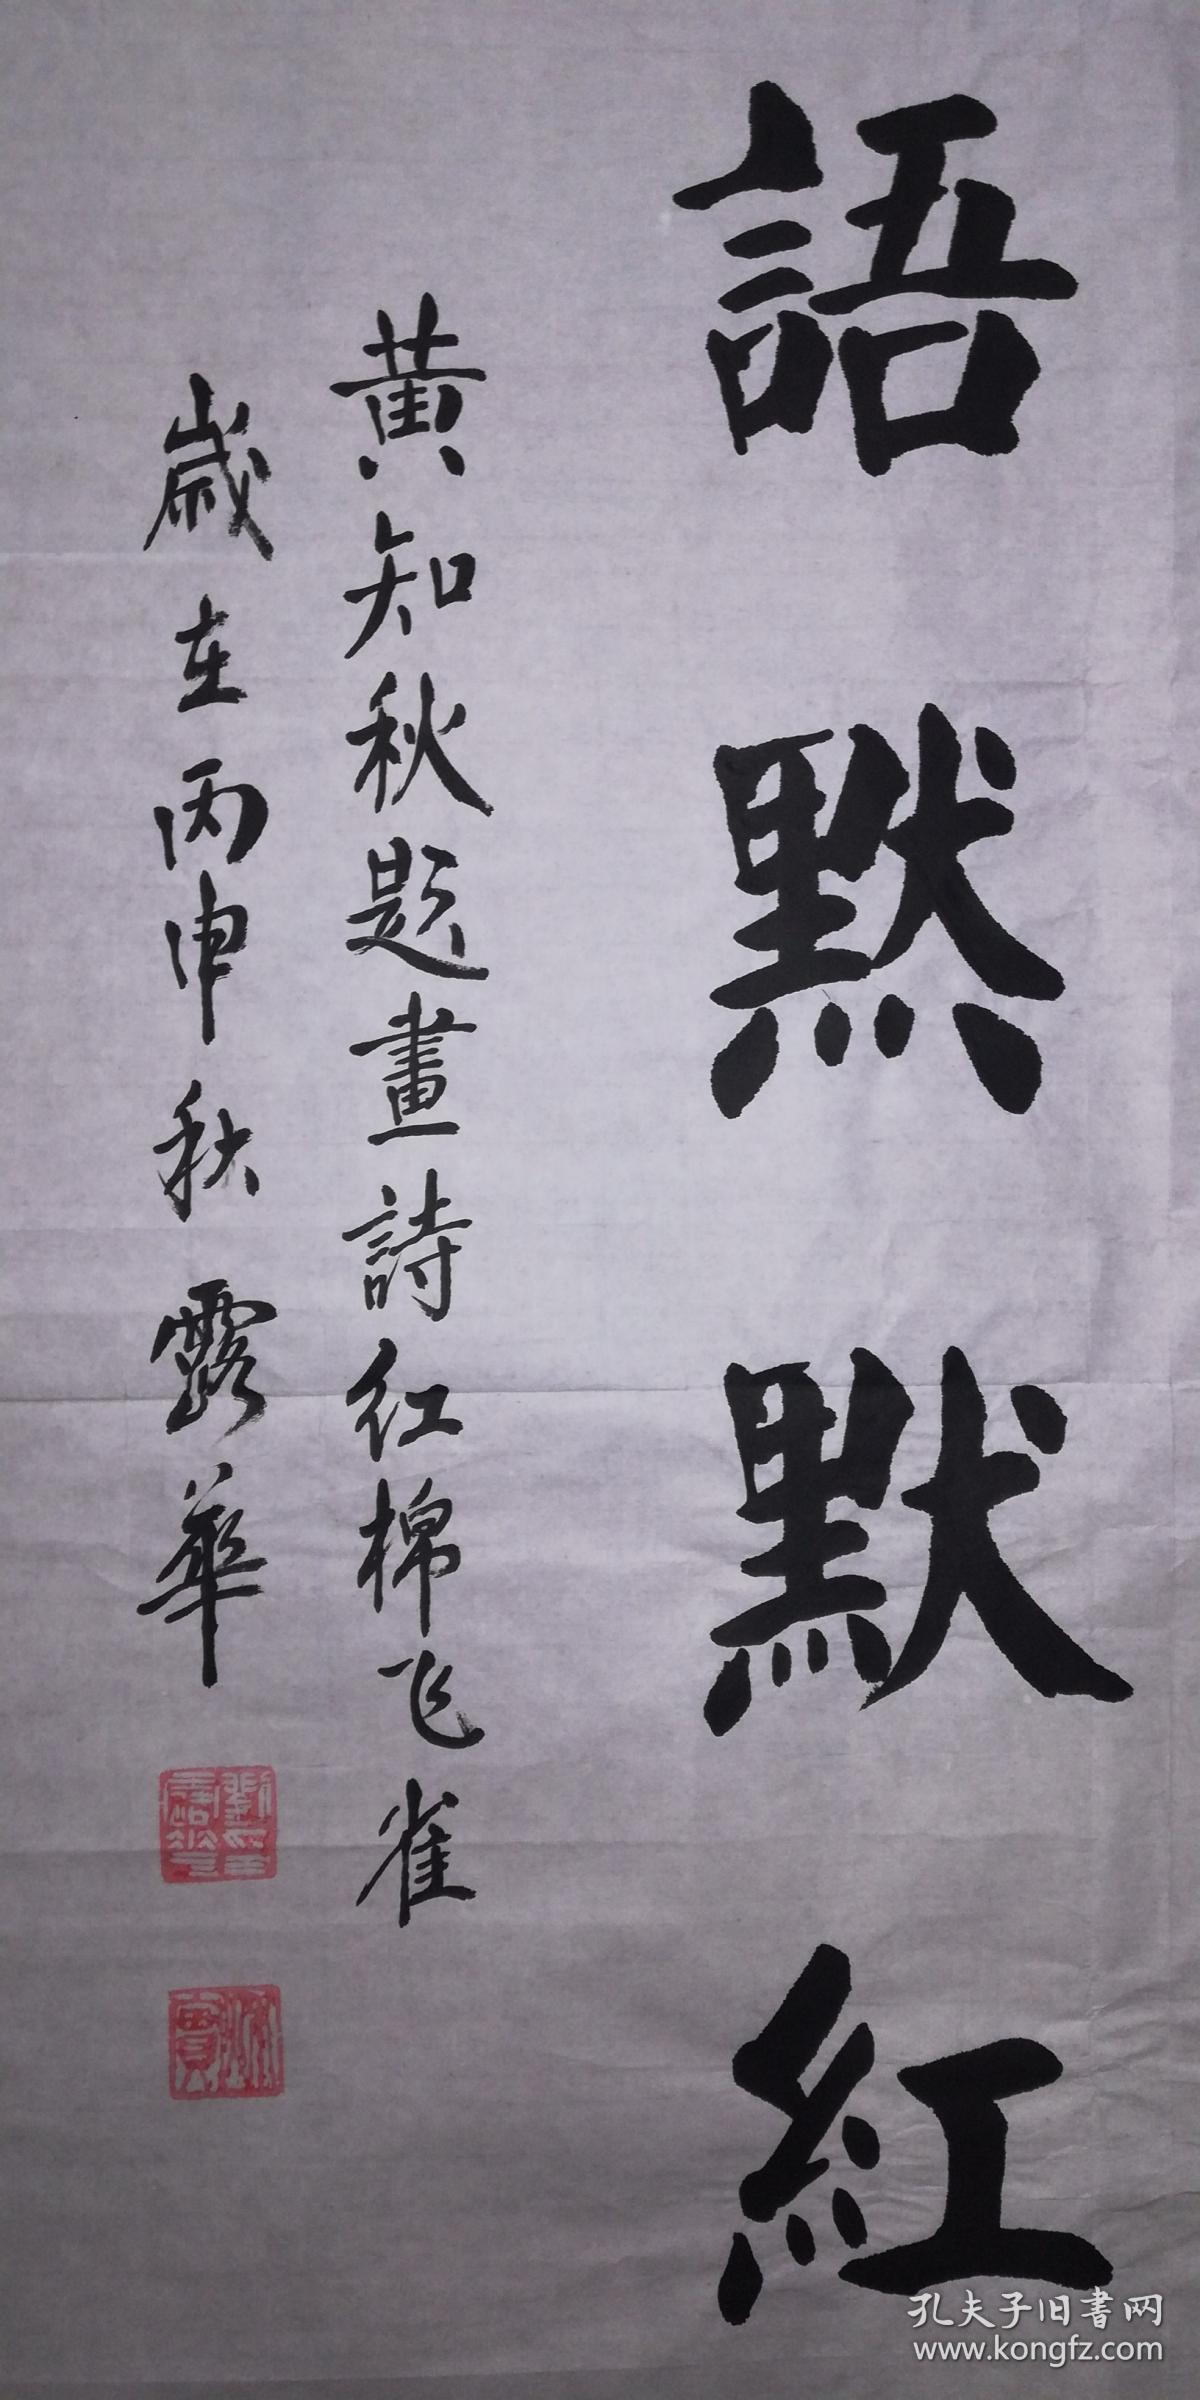 語默默紅
黄知秋題畫詩红棉飞雀
歲在丙申秋露華
孔夫子旧书网
www.kongfz.com